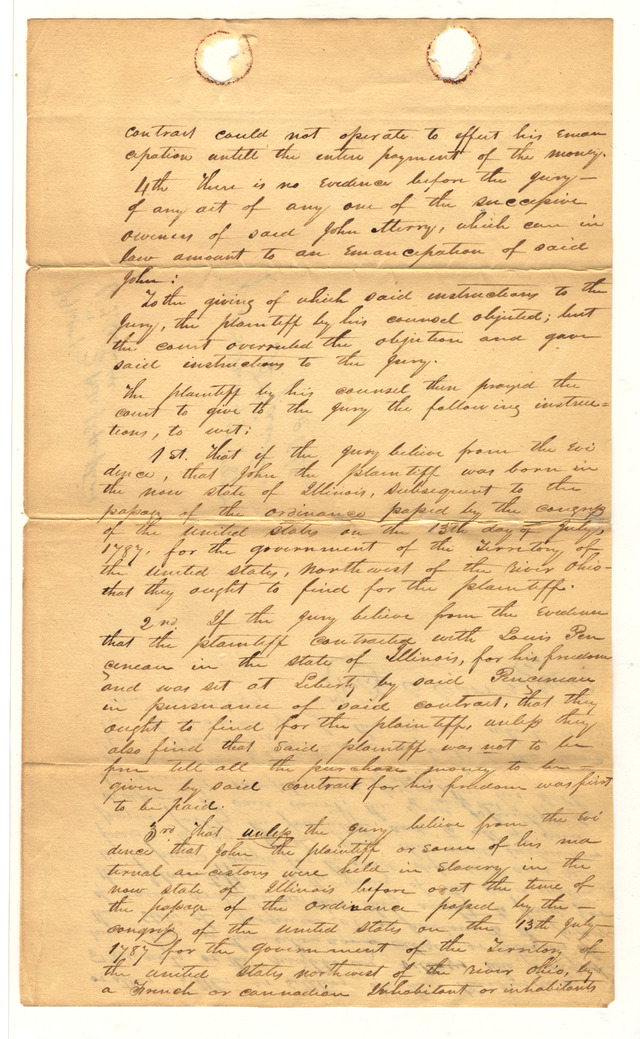 contract could not operate to effect his Eman
cipation untill the entire payment of the money.
4th There is no Evidence before the jury —
of any act of any one of the successive
owners of said John Merry, which can in
law amount to an Emancipation of said
John:
To the giving of which said instructions to the
Jury, the plaintiff by his counsel objected; but
the court overruled the objection and gave
said instructions to the Jury.
The plaintiff by his counsel then prayed the
court to give to the jury the following instruc=
tions, to wit:
1st. That if the jury believe from the Evi
dence, that John the plaintiff was born in
the now state of Illinois, subsequent to the
passage of the ordinance passed by the congress
of the united states on the 13th day of July,
1787, for the government of the Territory of
the united states, northwest of the river Ohio—
that they ought to find for the plaintiff.
2nd If the jury believe from the Evidence
that the plaintiff contracted with Louis Pen
cenean in the state of Illinois, for his freedom
and was set at Liberty by said Pencenian
in pursuance of said contract, that they
ought to find for the plaintiff, unless they
also find that said plaintiff was not to be
free till all the purchase money to be —
given by said contract for his freedom was first
to be paid.
3rd That unless the jury believe from the Evi
dence that John the plaintiff or some of his ma
ternal ancestors were held in Slavery in the
now state of Illinois before or at the time of
the passage of the Ordinance passed by the —
congress of the united states on the 13th July
1787 for the government of the Territory of
the united states northwest of the river Ohio, by
a French or cannadian Inhabitant or inhabitants